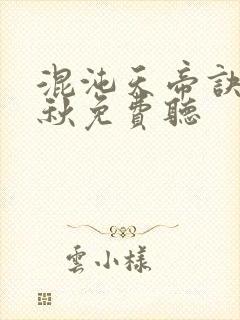 混沌天帝訣
秋免費聽
雲小樣